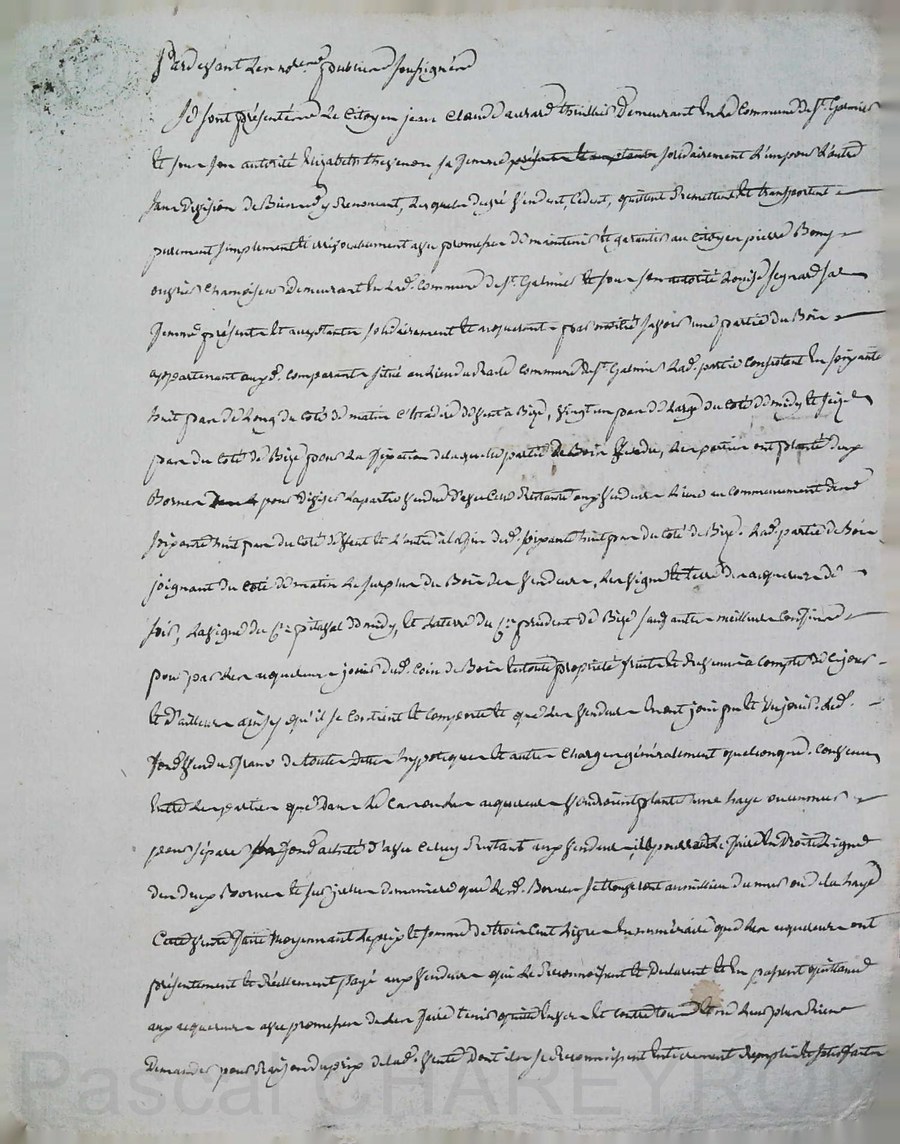 Pardevant les not.res publics soussignés
Se sont présentés le Citoyen jean Claude aurard thuillier demeurant en la Commune de St. Galmier
et sous son autorité Elizabeth thevenon sa femme présente et acceptante solidairement l'un pour l'autre
sans division de Biens d'y renoncant, lesquels de gré vendent, cedent, quittent remettent et transportent
purement simplement et irrévocablement avec promesses de maintenir et garantir au Citoyen pierre Bony
ouvrier chamoiseur demeurant en lad. Commune de St. Galmier et sous son autorité Louise seynard sa
femme présents et acceptants solidairement et acquerants par moitié savoir une partie du Bois
appartenant auxd. comparants situé au lieu du commune de St. Galmier lad. partie Consistant en soixante
huit pas de Long du coté de matin c'est à dire de vent à Bize, vingt un pas de large du coté de midy et seize
pas du coté de Bize pour la fixation de laquelle partie de Bois vendue, les parties ont planté deux
Bornes pour diviser la partie vendue d'avec celle restante aux vendeurs l'une au commencement desd.
soixante huit pas du coté de vent et l'autre à la fin desd. soixante huit pas du coté de Bize. Lad. partie de Bois
joignant du coté de matin le surplus du Bois des vendeurs, les vigne et terre des acquereurs de
soir, la vigne du C.en pitaval de midy, et la terre du C.en prudent de Bize sauf autres meilleurs confins
pour par les acquereurs jouir dud. coin de Bois en toute propriété fruits et revenus à compter de ce jour
et d'ailleurs ainsy qu'il se contient et comporte et que les vendeurs en ont joui pu et du jouir. Led.
fond vendu franc de toutes dettes hypotèques et autres charges généralement quelconques. Convenu
entre les parties que dans le cas ou les acquereurs voudroient planter une haye ou un mur
pour séparer fond acheté d'avec celuy restant aux vendeurs ils pourront le faire en droite ligne
des deux Bornes et sur icelles de maniere que lesd. Bornes se trouveront au millieu du mur ou de la haye
Cette vente faite moyennant le prix et somme de trois cent livres en numéraire que les acquereurs ont
présentement et réellement payé aux vendeurs qui le reconnoissent et declarent et en passent quittance
aux acquereurs avec promesses de les faire tenir quittes envers et contre tous et de ne leur plus rien
demander pour raison du prix de lad. vente dont ils se reconnoissent entierement remplis et satisfaits
Pascal CHAREYRON